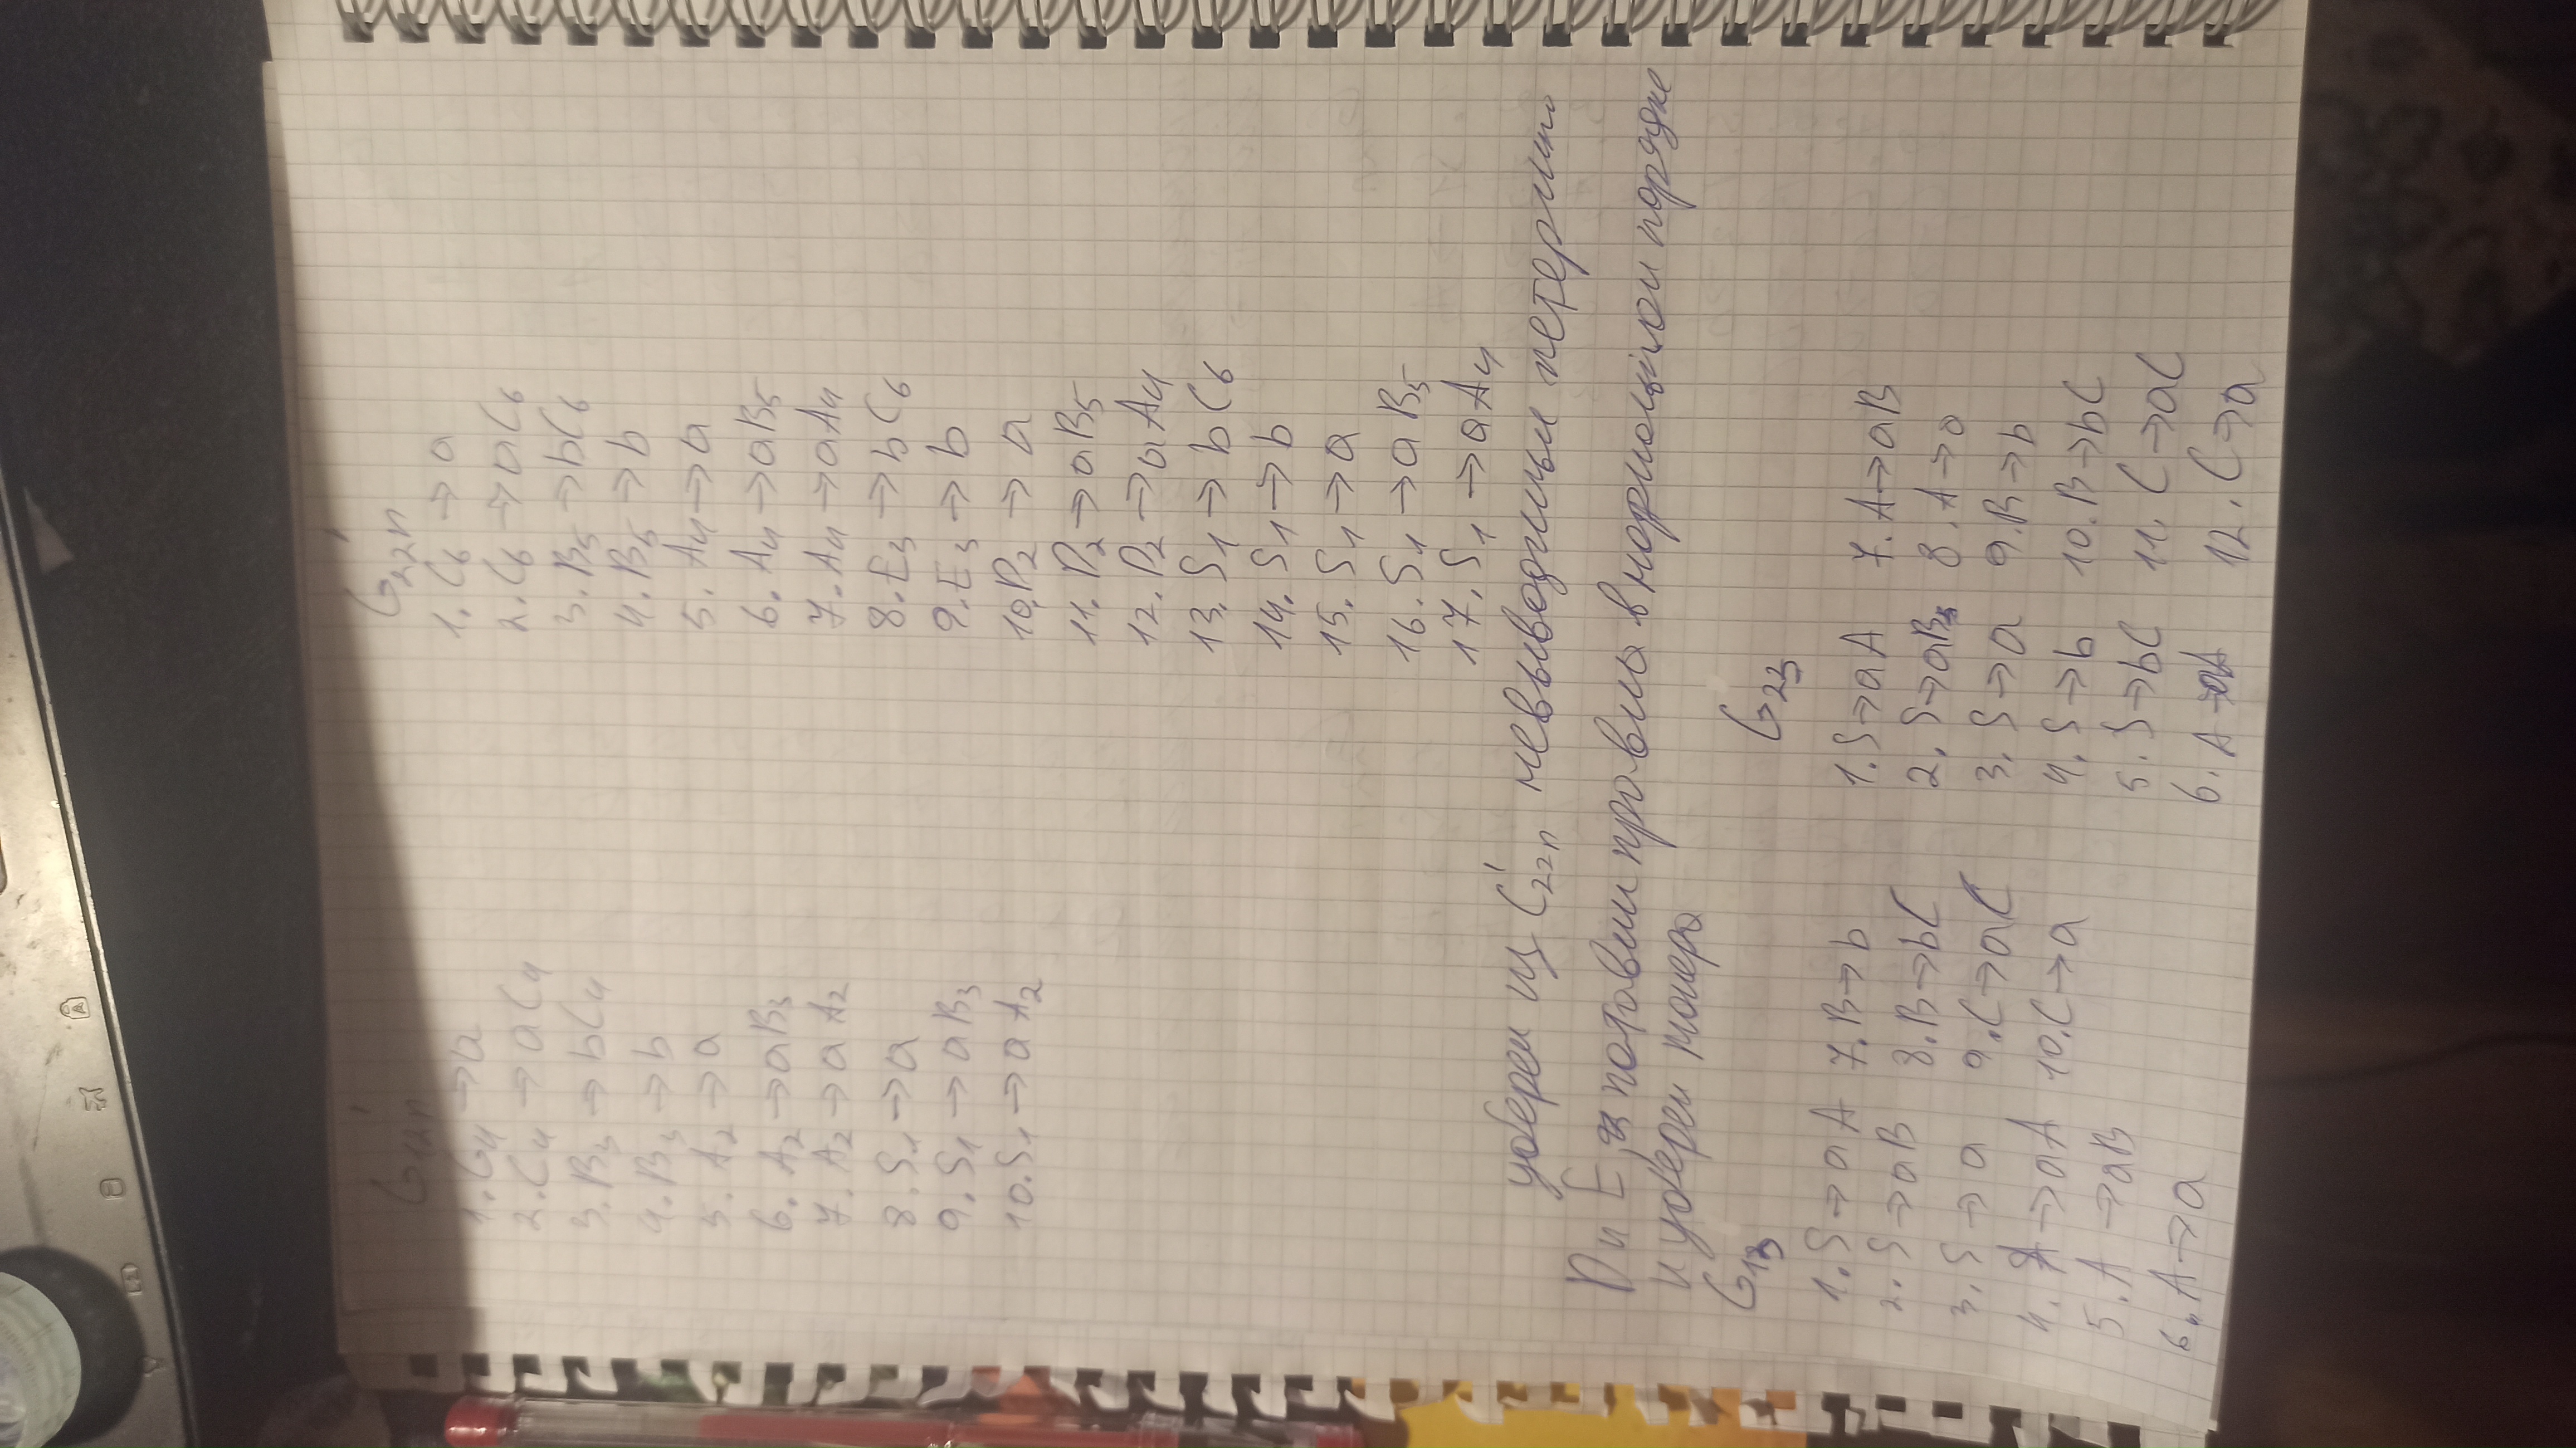 G'₁₂ₙ
1. C₄ → a
2. C₄ → aC₄
3. B₃ → bC₄
4. B₃ → b
5. A₂ → a
6. A₂ → aB₃
7. A₂ → aA₂
8. S₁ → a
9. S₁ → aB₃
10. S₁ → aA₂
G'₂₂ₙ
1. C₆ → a
2. C₆ → aC₆
3. B₅ → bC₆
4. B₅ → b
5. A₄ → a
6. A₄ → aB₅
7. A₄ → aA₄
8. E₃ → bC₆
9. E₃ → b
10. D₂ → a
11. D₂ → aB₅
12. D₂ → aA₄
13. S₁ → bC₆
14. S₁ → b
15. S₁ → a
16. S₁ → aB₅
17. S₁ → aA₄
уберем из G'₂₂ₙ невыводимые
D и E, правила в порядке
и уберем номера
G₁₃
1. S → aA
2. S → aB
3. S → a
4. A → aA
5. A → aB
6. A → a
7. B → b
8. B → bC
9. C → aC
10. C → a
G₂₃
1. S → aA
2. S → aB
3. S → a
4. S → b
5. S → bC
6. A → aA
7. A → aB
8. A → a
9. B → b
10. B → bC
11. C → aC
12. C → a